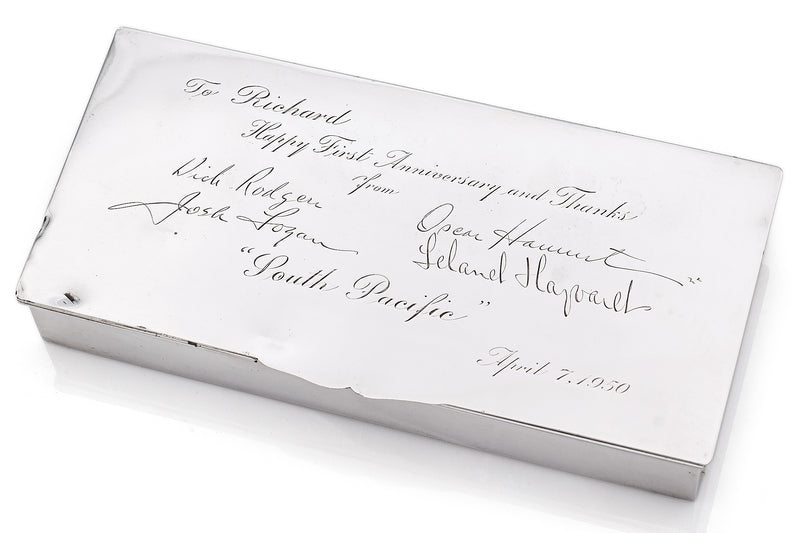 To Richard
Happy First Anniversary and Thanks
from
Dick Rodgers
Oscar Hammerst
Josh Logan
Leland Hayward
"South Pacific"
April 7, 1950